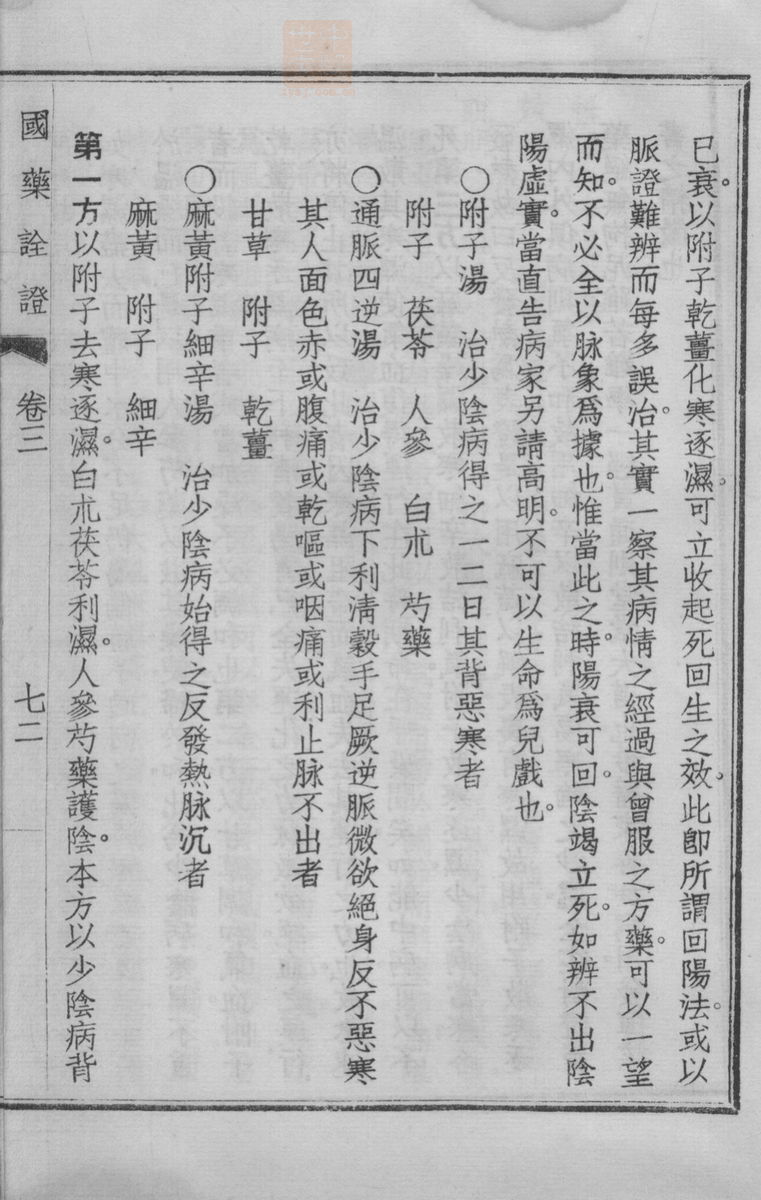 已衰。以附子乾薑化寒逐濕。可立收起死回生之效。此卽所謂回陽法。或以
脈證難辨而每多誤治。其實一察其病情之經過與曾服之方藥。可以一望
而知。不必全以脉象爲據也。惟當此之時。陽衰可回。陰竭立死。如辨不出陰
陽虛實。當直告病家另請高明。不可以生命爲兒戲也。
○附子湯　治少陰病得之一二日其背惡寒者
附子　茯苓　人參　白朮　芍藥
○通脈四逆湯　治少陰病下利淸穀手足厥逆脈微欲絕身反不惡寒
其人面色赤或腹痛或乾嘔或咽痛或利止脉不出者
甘草　附子　乾薑
○麻黃附子細辛湯　治少陰病始得之反發熱脉沉者
麻黃　附子　細辛
第一方以附子去寒逐濕。白朮茯苓利濕。人參芍藥護陰。本方以少陰病背
國藥詮證　卷三　七二